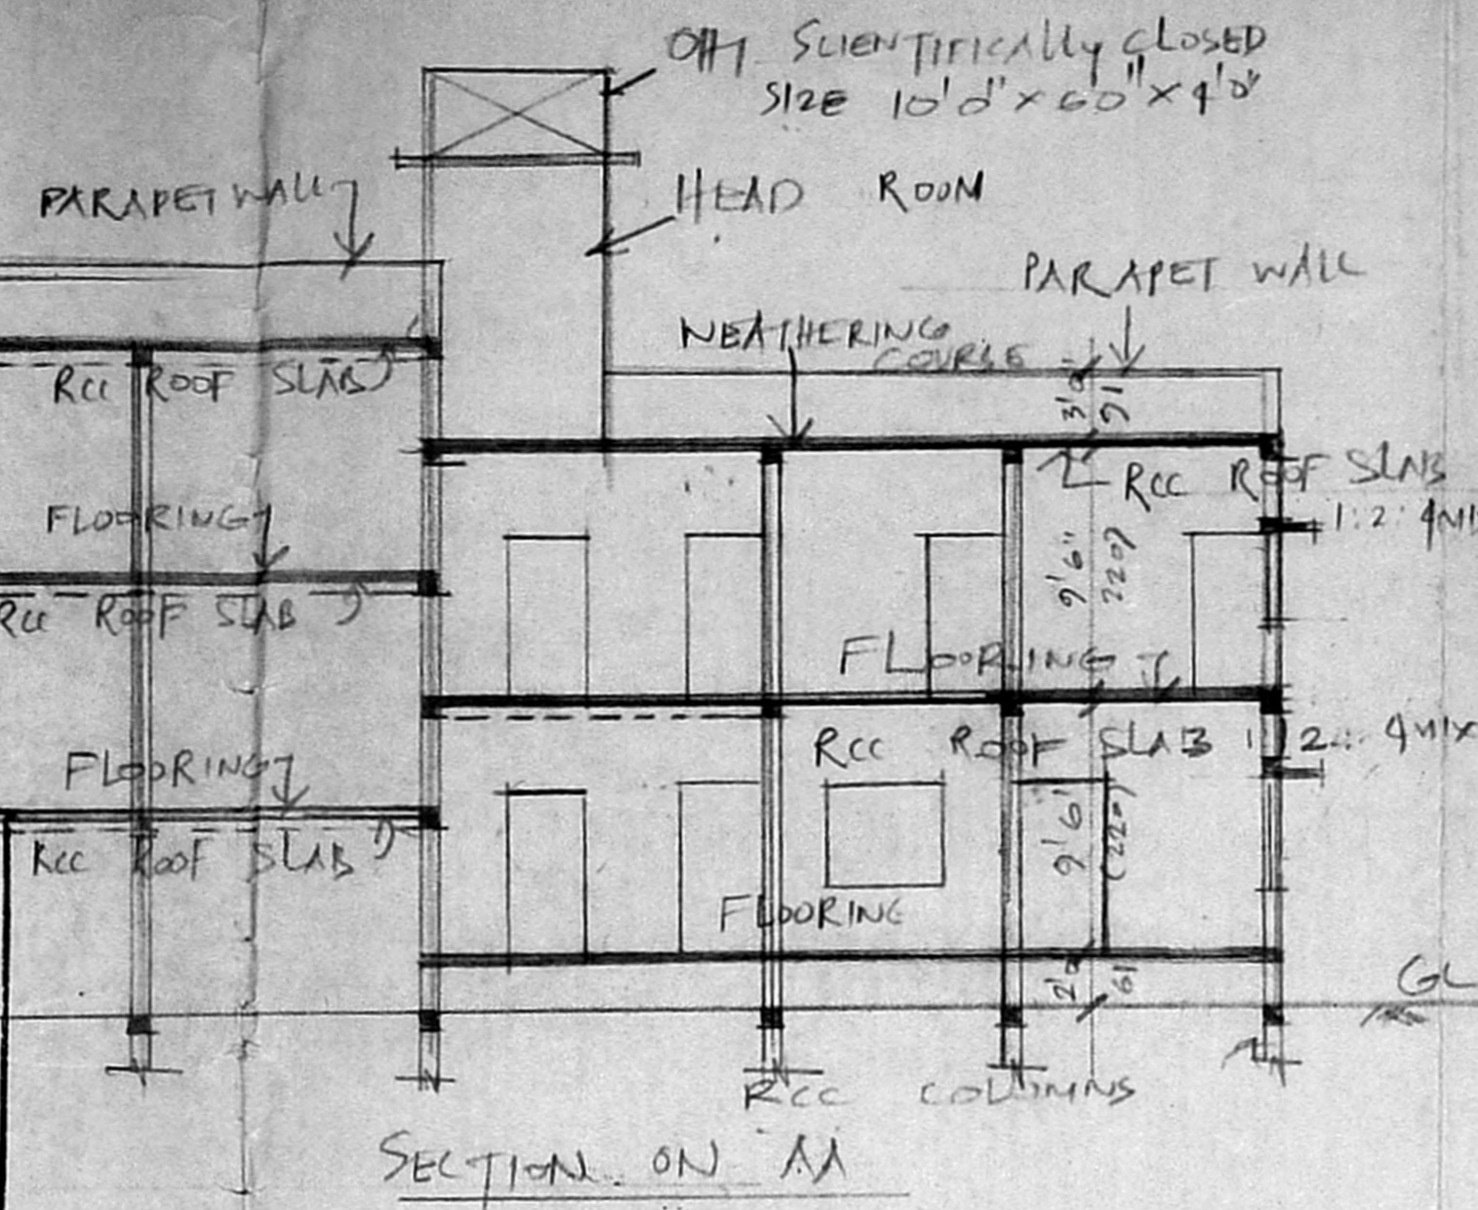 OHT SCIENTIFICALLY CLOSED
SIZE 10'0" X 6'0" X 4'0"
PARAPET WALL
HEAD ROOM
PARAPET WALL
WEATHERING
COURSE
3'0
91
RCC ROOF SLAB
RCC ROOF SLAB
1:2:4MI
FLOORING
9'6"
220)
RCC ROOF SLAB
FLOORING
RCC ROOF SLAB 1:2:4MIX
FLOORING
RCC ROOF SLAB
9'6"
(220)
FLOORING
2'0
61
GL
RCC COLUMNS
SECTION ON AA